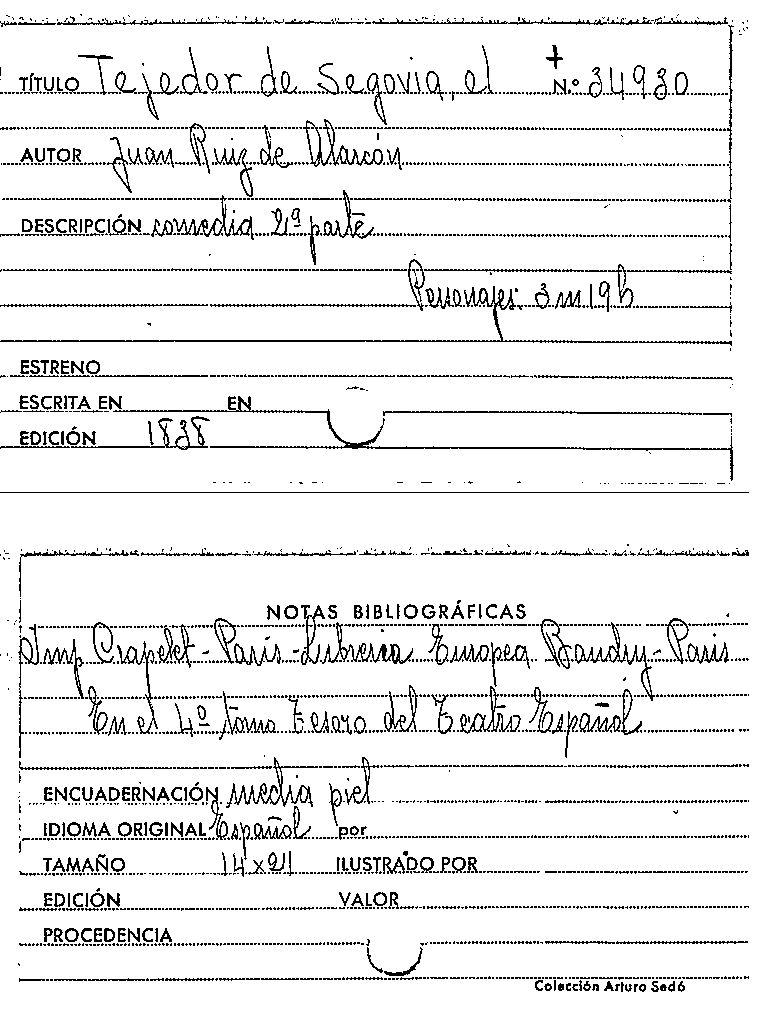 TÍTULO Tejedor de Segovia, el + N.º 34930
AUTOR Juan Ruiz de Alarcón
DESCRIPCIÓN comedia 2ª parte
Personajes: 3 m 19 h
ESTRENO
ESCRITA EN EN
EDICIÓN 1838
NOTAS BIBLIOGRÁFICAS
Imp Crapelet - París - Libreria Europea Baudry - Paris
En el 4º tomo Tesoro del Teatro Español
ENCUADERNACIÓN media piel
IDIOMA ORIGINAL Español por
TAMAÑO 14 x 21 ILUSTRADO POR
EDICIÓN VALOR
PROCEDENCIA
Colección Arturo Sedó